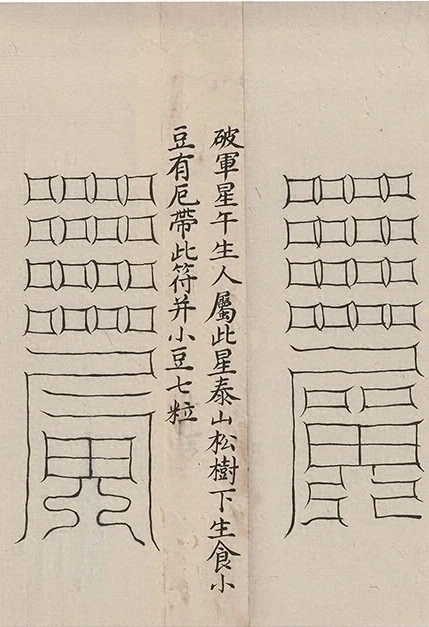 破軍星午生人屬此星泰山松樹下生食小
豆有厄帶此符并小豆七粒